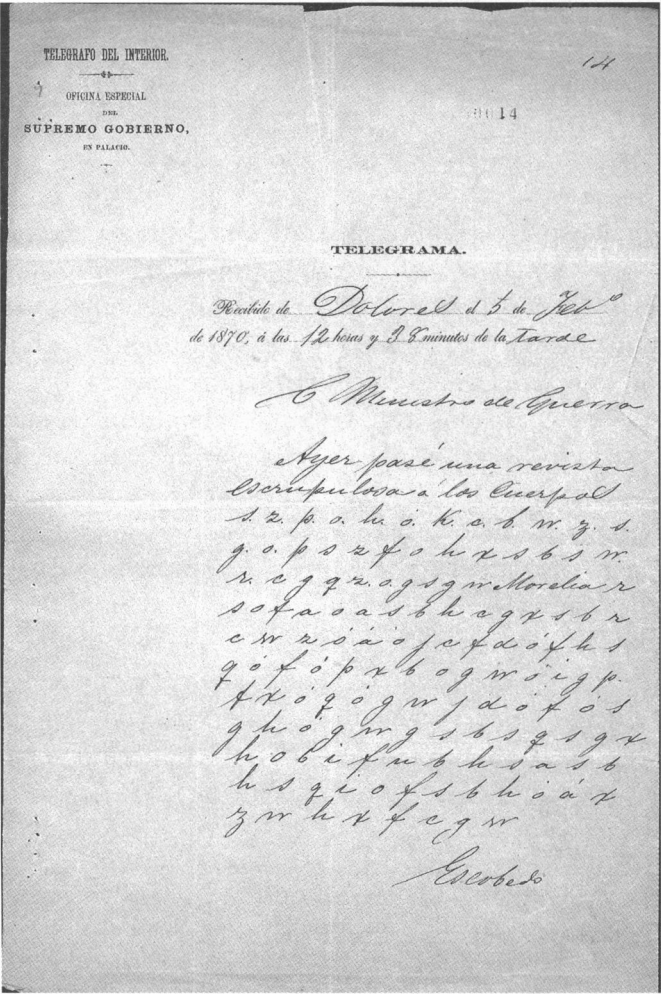 TELEGRAFO DEL INTERIOR.
OFICINA ESPECIAL
DEL
SUPREMO GOBIERNO,
EN PALACIO.
14
0014
TELEGRAMA.
Recibido de Dolores el 5 de Feb.o
de 1870, á las 12 horas y 38 minutos de la tarde
C Ministro de Guerra
Ayer pasé una revista
escrupulosa á los Cuerpos
s. z. p. o. h. ó. K. c. b. w. z. s.
g. o. p s z f o h x s b s w.
r. c g q z. o. g s g w Morelia r
s o f a o a s b h c g x s b r
c w z ó á o j c f d ó f h s
q ó f ó p x b o g w ó i g p.
f x ó q ó g w j d ó f ó s
g h ó g w g s b s q s g x
h o b i f u b h s a s b
h s q i o f s b h o á x
z w h x f c g w
Escobedo